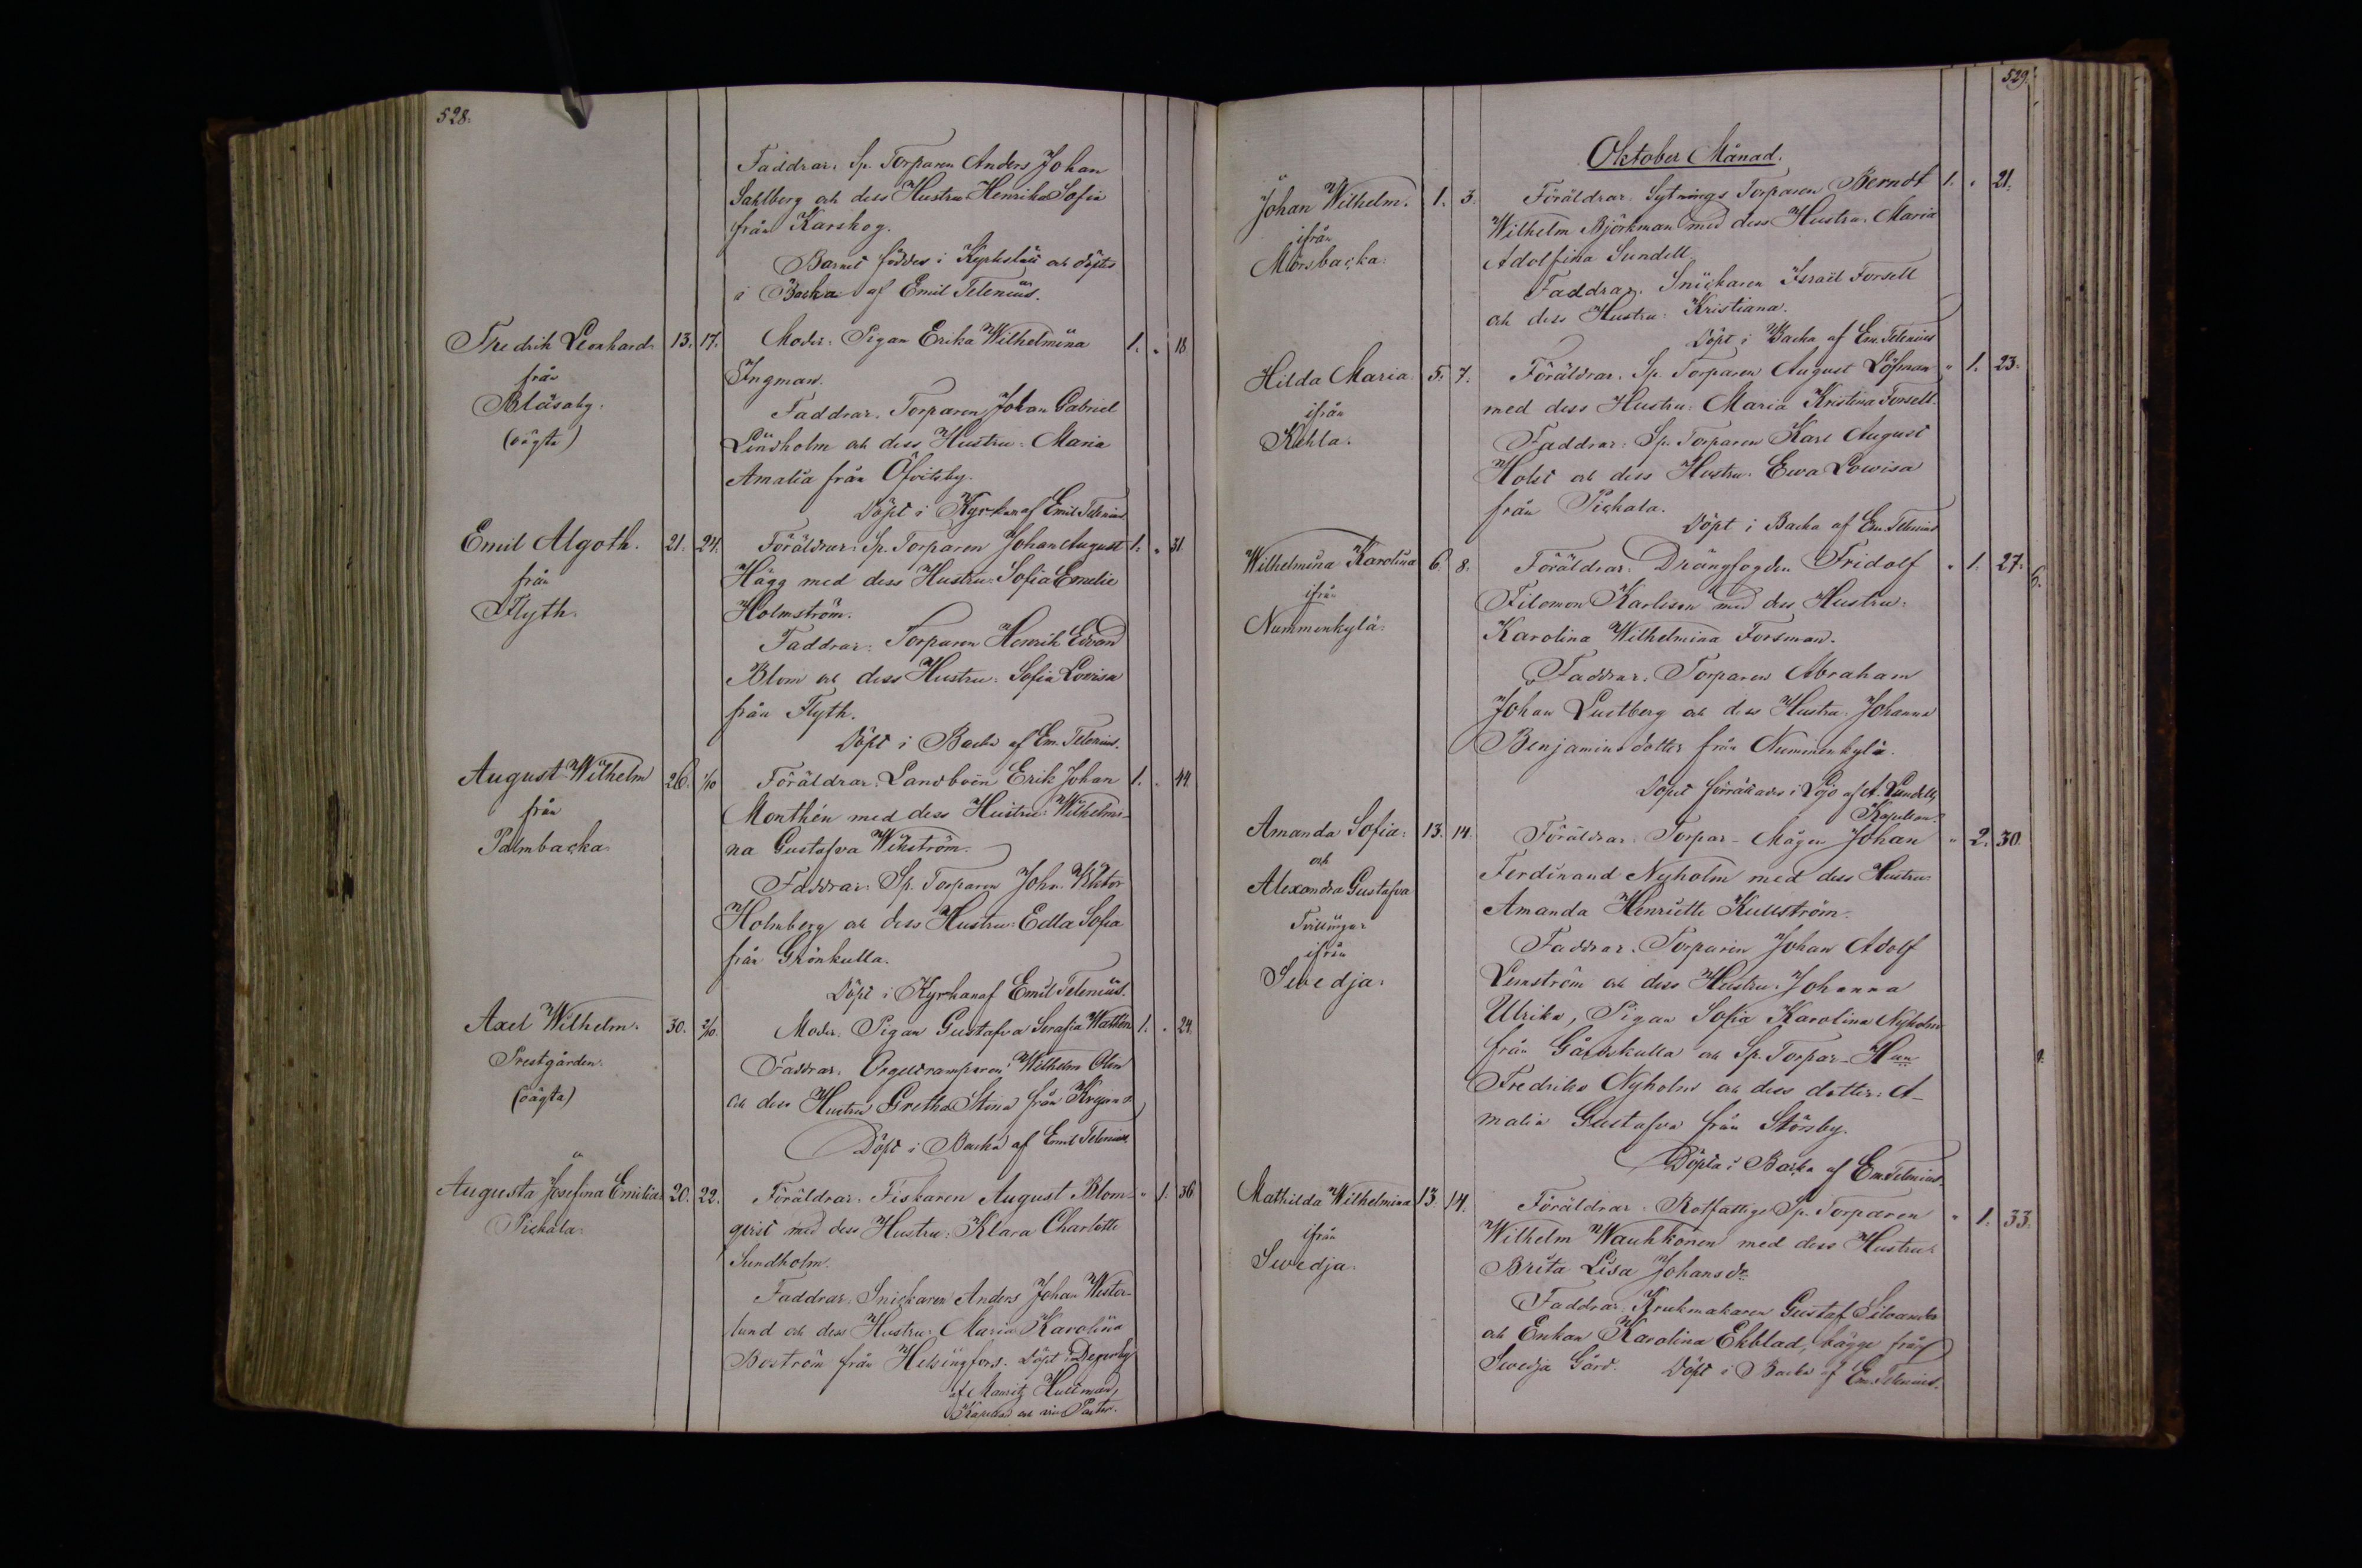 528.
Faddrar. Sp. Torparen Anders Johan
Sahlberg och dess Hustru Henrika Sofia
från Karskog.
Barnet föddes i Kyrkslätt och döptes
i Backa af Emil Telenius.
Fredrik Leonhard. 13. 17. Moder: Pigan Erika Wilhelmina 1. „ 18
från Ingman.
Blåsaby. Faddrar. Torparen Johan Gabriel
(oägta) Lindholm och dess Hustru: Maria
Amalia från Öfvitsby.
Döpt i Kyrkan af Emil Telenius
Emil Algoth. 21. 24. Föräldrar: Sp. Torparen Johan August 1. „ 31.
från Hägg med dess Hustru: Sofia Emelie
Flyth. Holmström.
Faddrar: Torparen Henrik Edvard
Blom och dess Hustru: Sofia Lovisa
från Flyth.
Döpt i Backa af Em. Telenius.
August Wilhelm 26. 1/10 Föräldrar: Landboen Erik Johan 1. „ 44.
från Monthén med dess Hustru: Wilhelmi-
Palmbacka. na Gustafva Wikström.
Faddrar: Sp. Torparen Joh. Viktor
Holmberg och dess Hustru: Edla Sofia
från Grönkulla.
Döpt i Kyrkan af Emil Telenius.
Axel Wilhelm. 30. 2/10. Moder. Pigan Gustafva Serafia Wathén 1. „ 24.
Prestgården. Faddrar. Orgeltramparen Wilhelm Olin
(oägta) och dess Hustru Gretha Stina från
Döpt i Backa af Emil Telenius.
Augusta Josefina Emilia. 20. 22. Föräldrar. Fiskaren August Blom- „ 1. 36
Pickala. qvist med dess Hustru: Klara Charlotte
Sundholm.
Faddrar. Snickaren Anders Johan Wester-
lund och dess Hustru: Maria Karolina
Boström från Helsingfors. Döpt i Degerby
af Mauritz Hultman,
Kapellan och vice Pastor.
529.
Oktober Månad.
Johan Wilhelm. 1. 3. Föräldrar. Sytnings Torparen Berndt 1. „ 21.
ifrån Wilhelm Björkman med dess Hustru. Maria
Mörsbacka. Adolfina Sundell.
Faddrar. Snickaren Israël Forsell
och dess Hustru: Kristiana.
Döpt i Backa af Em. Telenius
Hilda Maria. 5. 7. Föräldrar. Sp. Torparen August Löfman „ 1. 23.
ifrån med dess Hustru: Maria Kristina Forsell.
Kehla. Faddrar: Sp. Torparen Karl August
Holst och dess Hustru. Ewa Lowisa
från Pickala.
Döpt i Backa af Em. Telenius
Wilhelmina Karolina 6. 8. Föräldrar. Drängfogden Fridolf „ 1. 27. 6.
ifrån Filemon Karlsson med dess Hustru:
Nummenkylä. Karolina Wilhelmina Forsman.
Faddrar. Torparen Abraham
Johan Lustberg och dess Hustru. Johanna
Benjamins dotter från Nummenkylä.
Dopet förrättades i Lojo af A. Lundell,
Kapellan.
Amanda Sofia. 13. 14. Föräldrar. Torpar-Mågen Johan „ 2. 30
och Ferdinand Nyholm med dess Hustru:
Alexandra Gustafva Amanda Henriette Kullström.
Tvillingar Faddrar. Torparen Johan Adolf
ifrån Lemström och dess Hustru. Johanna
Svedja. Ulrika, Pigan Sofia Karolina Nyholm
från Gårdskulla och Sp. Torpar-Hun
Fredrika Nyholm och dess dotter: A-
malia Gustafva från Störsby.
Döpta i Backa af Em. Telenius.
Mathilda Wilhelmina 13. 14. Föräldrar. Rotfattige Sp. Torparen „ 1. 33.
ifrån Wilhelm Wauhkonen med dess Hustru.
Svedja. Brita Lisa Johansdr.
Faddrar. Krukmakaren Gustaf Silvander
och Enkan Karolina Ekblad, bägge från
Svedja Gård. Döpt i Backa af Em. Telenius.